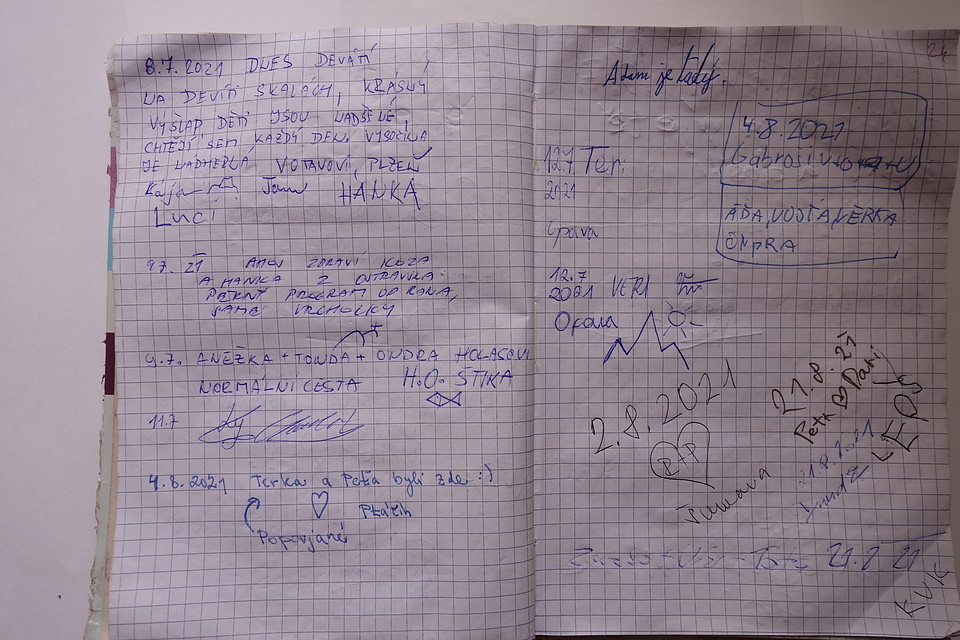 8.7.2021 DNES DEVÁTÍ
NA DEVÍTI SKALÁCH, KRÁSNÝ
VÝŠLAP DĚTI JSOU NADŠENÉ,
CHTĚJÍ SEM KAŽDÝ DEN. VYSOČINA
JE NÁDHERNÁ VOTAVOVI, PLZEŇ
Kája Tom HANKA
Luci
9.7. 21 AHOJ ZDRAVÍ KOZA
A HANKA Z OSTRAVKA.
PĚKNÝ PROGRAM OD RÁNA,
SAMÉ VRCHOLKY
9.7. ANEŽKA + TONDA + ONDRA HOLASOVI
NORMÁLNÍ CESTA H.O. ŠTIKA
11.7
4.8.2021 Terka a Péťa byli zde :)
Ptáčin
Popovjané
24
Adam je tady.
4.8.2021
Gabrošiv
ÁĎA, VOJTA, VĚRKA
ONDRA
12.7 Ter.
2021
Opava
12.7
2021 VERI
Opava
2.8.2021
R+P
Šumava
21.8.21
Petr Dari
LEOŠ
21.8.21
21.8 21
KVK